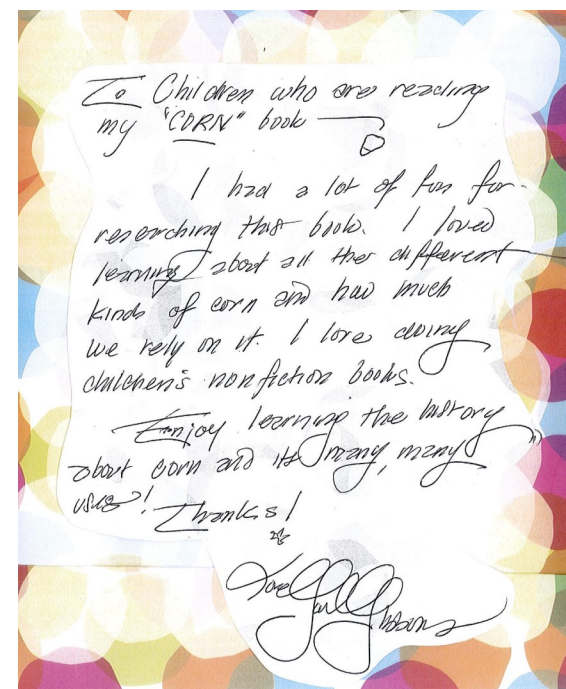 To Children who are reading
my "CORN" book
I had a lot of fun for
researching this book. I loved
learning about all the different
kinds of corn and how much
we rely on it. I love doing
children's nonfiction books.
Enjoy learning the history
about corn and its many, many
uses!
Thanks!
Love Gail Gibbons